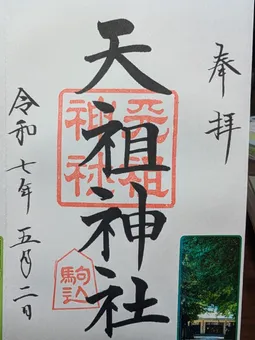 奉拝
天祖神社
天祖神社
駒込
令和七年五月二日